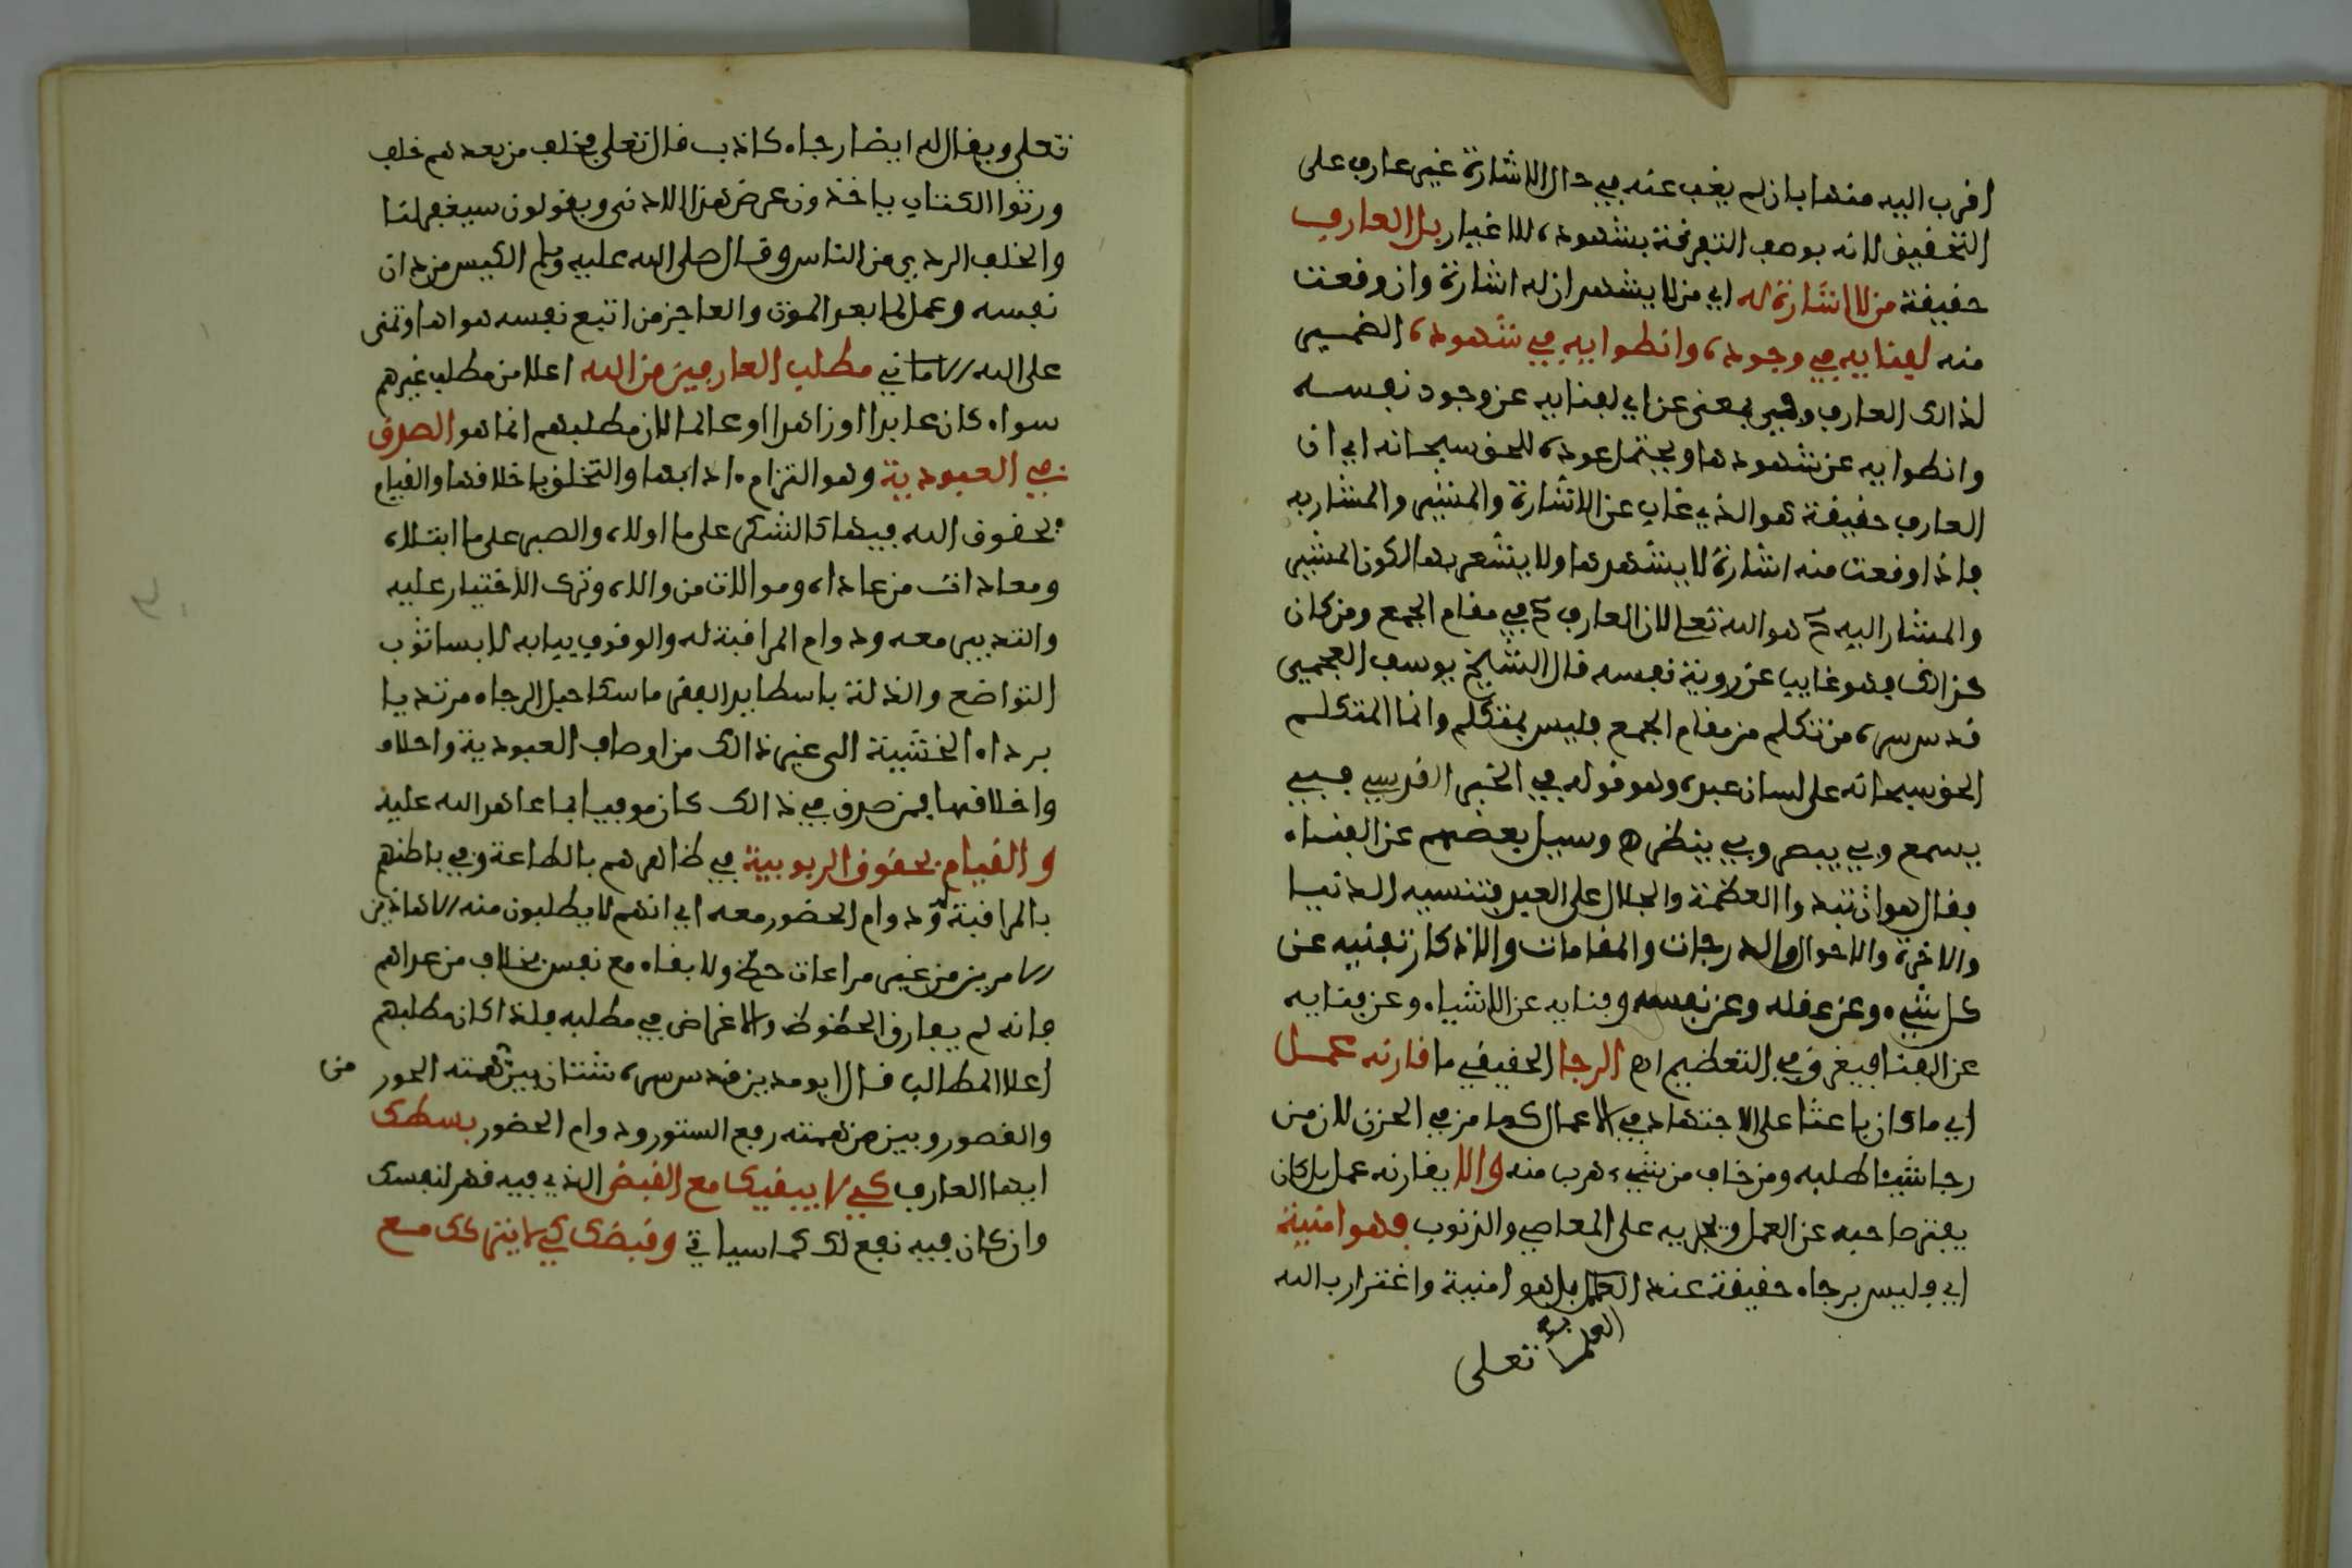 اقرب اليه منها بان لم يغب عنه في حال الاشارة غير عارف على
التحقيق لانه بوصف التفرقة بشهوده للاغيار بل العارف
حقيقة من لا اشارة له اي من لا يشهد ان له اشارة وان وقعت
منه لفنايه في وجوده وانطوايه في شهوده الضمير
لذالك العارف وفي بمعنى عن اي لفنايه عن وجود نفسه
وانطوايه عن شهودها ويحتمل عوده للحق سبحانه اي ان
العارف حقيقة هو الذي غاب عن الاشارة والمشير والمشار به
فاذا وقعت منه اشارة لا يشهدها ولا يشعر بها لكون المشير
والمشار اليه ح هو الله تعلى لان العارف ح في مقام الجمع ومن كان
كذالك فهو غايب عن روية نفسه قال الشيخ يوسف العجمي
قدس سره من تكلم من مقام الجمع فليس بمتكلم وانما المتكلم
الحق سبحانه على لسان عبده وهو قوله في الخبر القدسي فبي
يسمع وبي يبصر وبي ينظر ه وسيل بعضهم عن الفناء
فقال هو ان تبدوا العظمة والجلال على العبد فتنسيه الدنيا
والاخرة والاحوال والدرجات والمقامات والاذكار تفنيه عن
كل شيء وعن عقله وعن نفسه وفنايه عن الاشياء وعن فنايه
عن الفنا فيغرق في التعظيم اه الرجا الحقيقي ما قارنه عمل
اي ما كان باعثا على الاجتهاد في الاعمال كما مر في الحزن لان من
رجا شيئا طلبه ومن خاف من شيء هرب منه والا يقارنه عمل بل كان
يفتر صاحبه عن العمل ويجريه على المعاصي والذنوب فهو امنية
اي وليس برجاء حقيقة عند العمل بل هو امنية واغترار بالله
العلماء
تعلى
تعلى ويقال له ايضا رجاء كاذب قال تعلى فخلف من بعدهم خلف
ورثوا الكتاب ياخذون عرض هذا الادنى ويقولون سيغفر لنا
والخلف الردي من الناس وقال صلى الله عليه وسلم الكيس من دان
نفسه وعمل لما بعد الموت والعاجز من اتبع نفسه هواها وتمنى
على الله الاماني مطلب العارفين من الله اعلا من مطلب غيرهم
سواء كان عابدا او زاهدا او عالما لان مطلبهم انما هو الصدق
في العبودية وهو التزام ءادابها والتخلق باخلاقها والقيام
بحقوق الله فيها كالشكر على ما اولاه والصبر على ما ابتلاه
ومعادات من عاداه وموالات من والاه وترك الاختيار عليه
والتدبير معه ودوام المراقبة له والوقوف ببابه لابسا ثوب
التواضع والذلة باسطا يد الفقر ماسكا حبل الرجاء مرتديا
برداء الخشية الى غير ذالك من اوصاف العبودية واحلام
واخلاقها فمن صدق في ذالك كان موفيا بما عاهد الله عليه
والقيام بحقوق الربوبية في ظاهرهم بالطاعة وفي باطنهم
بالمراقبة له ودوام الحضور معه اي انهم لا يطلبون منه الا هاذين
الامرين من غير مراعات حظ ولا بقاء مع نفس بخلاف من عداهم
فانه لم يفارق الحظوظ والاغراض في مطلبه فلذا كان مطلبهم
اعلا المطالب قال ابو مدين قدس سره شتان بين همته الحور
من
والقصور وبين من همته رفع الستور ودوام الحضور بسطك
ايها العارف كي لا يبقيك مع القبض الذي فيه قهر لنفسك
وان كان فيه نفع لك كما سياتي وقبضك كي لا يتركك مع